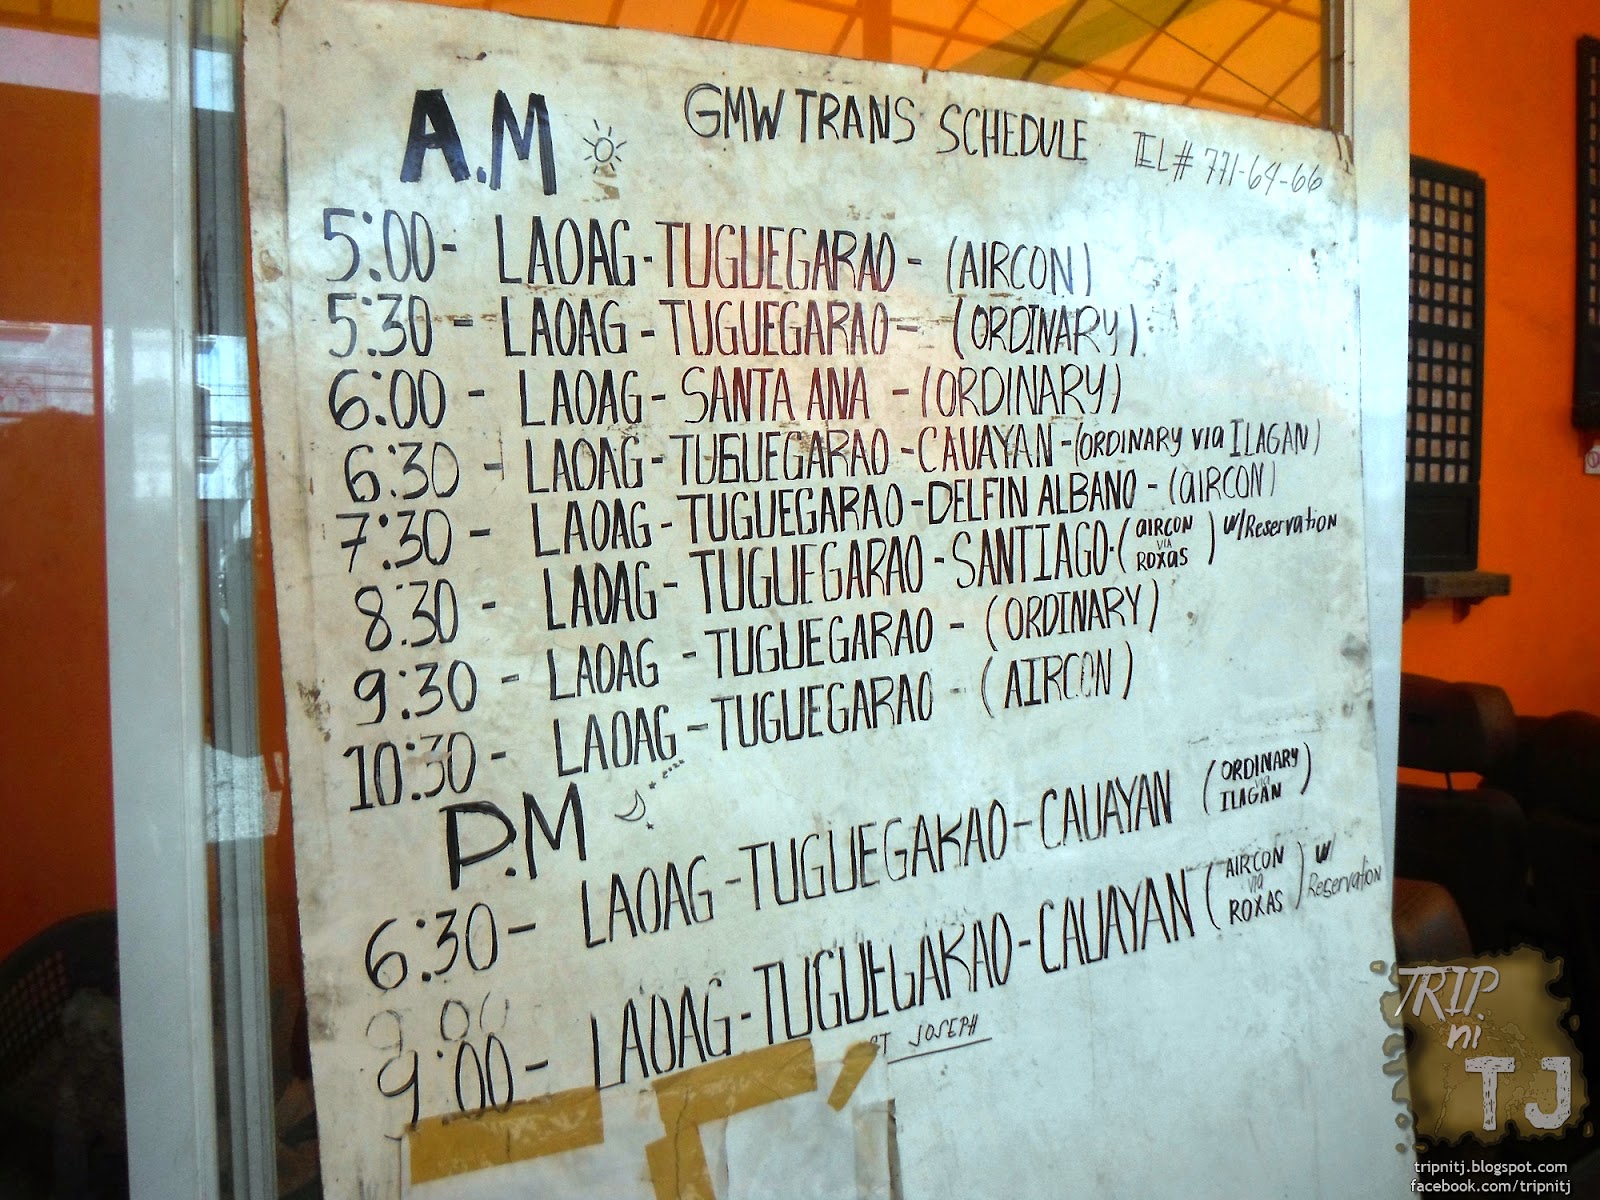 A.M GMW TRANS SCHEDULE TEL# 771-64-66
5:00- LAOAG-TUGUEGARAO- (AIRCON)
5:30 - LAOAG-TUGUEGARAO- (ORDINARY)
6:00 - LAOAG- SANTA ANA - (ORDINARY)
6:30 - LAOAG-TUGUEGARAO-CAUAYAN-(ORDINARY via ILAGAN)
7:30 - LAOAG-TUGUEGARAO-DELFIN ALBANO - (aIRCON)
8:30 - LAOAG-TUGUEGARAO-SANTIAGO-(aIRCON VIA ROXas) w/Reservation
9:30 - LAOAG -TUGUEGARAO - (ORDINARY)
10:30 - LAOAG -TUGUEGARAO - (AIRCON)
P.M
6:30- LAOAG-TUGUEGARAO-CAUAYAN (ORDINARY via ILAGAN)
9:00
9:00 - LAOAG-TUGUEGARAO-CAUAYAN (AIRCON via ROXAS) w/ Reservation
ST JOSEPH
TRIP ni TJ
tripnitj.blogspot.com
facebook.com/tripnitj